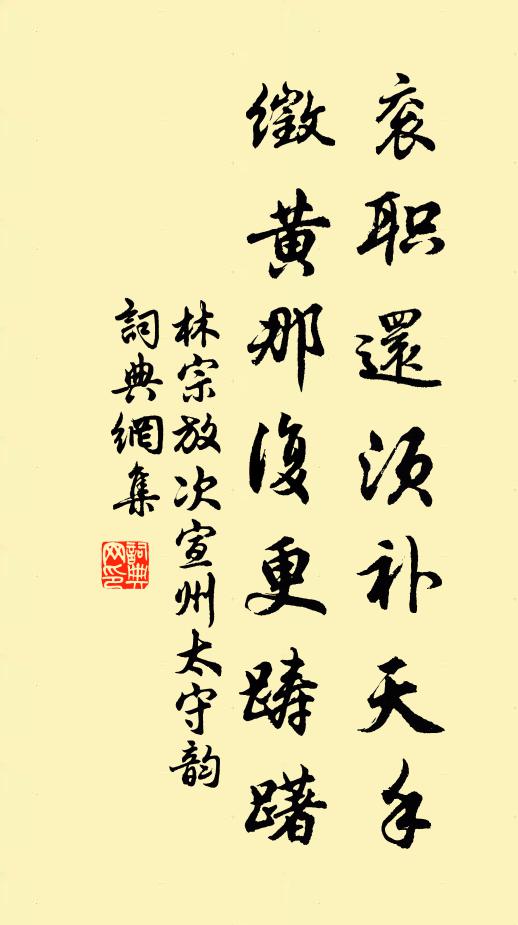 衮职還须补天手
徵黄那復更踌躇
林宗放次宣州太守韵
詞典網集
詞典网印